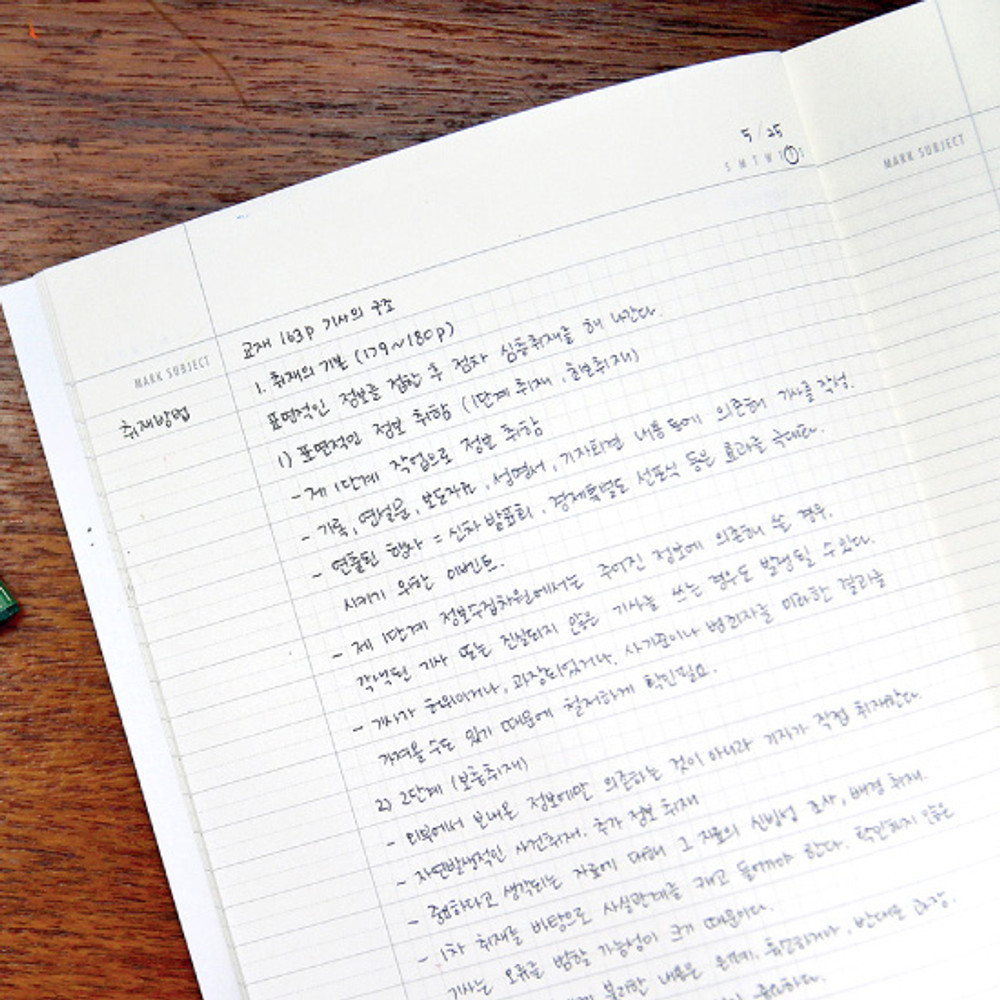 5/25
S M T W T T S
MARK SUBJECT
MARK SUBJECT
취재방법
교재 163p 기사의 구조
1. 취재의 기본 (179~180p)
표면적인 정보를 접한 후 점차 심층취재를 해 나간다.
1) 표면적인 정보 취합 (1단계 취재, 초보취재)
- 제 1단계 작업으로 정보 취합
- 기록, 연설문, 보도자료, 성명서, 기자회견 내용 등에 의존해 기사를 작성.
- 연출된 행사 = 신차 발표회, 경제특별도 선포식 등은 효과를 극대화
시키기 위한 이벤트.
- 제 1단계 정보수집차원에서는 주어진 정보에 의존해 쓸 경우,
각색된 기사 또는 진실되지 않은 기사를 쓰는 경우도 발생될 수 있다.
- 기사가 허위이거나, 과장되었거나, 사기꾼이나 범죄자를 미화한 결과를
가져올 수도 있기 때문에 철저하게 확인필요.
2) 2단계 (보충취재)
- 외부에서 보내온 정보에만 의존하는 것이 아니라 기자가 직접 취재한다.
- 자연발생적인 사건취재, 추가 정보 취재
- 중요하다고 생각되는 자료에 대해 그 자료의 신빙성 조사, 배경 취재.
- 1차 취재를 바탕으로 사실관계를 캐고 들어가야 한다. 확인되지 않은
기사는 오류를 범할 가능성이 크기 때문이다.
불리한 내용은 은폐, 축소하거나, 반대로 과장.